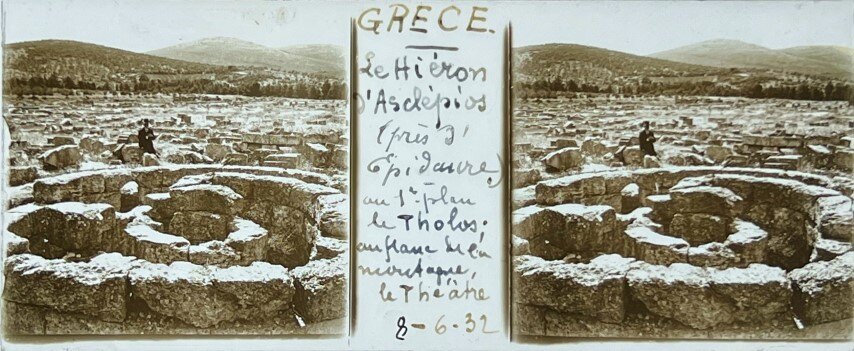 GRECE.
Le Hiéron
d'Asclépios
(près d'
Epidaure)
au 1er plan
le Tholos;
au flanc de la
montagne,
le Théâtre
8-6-32